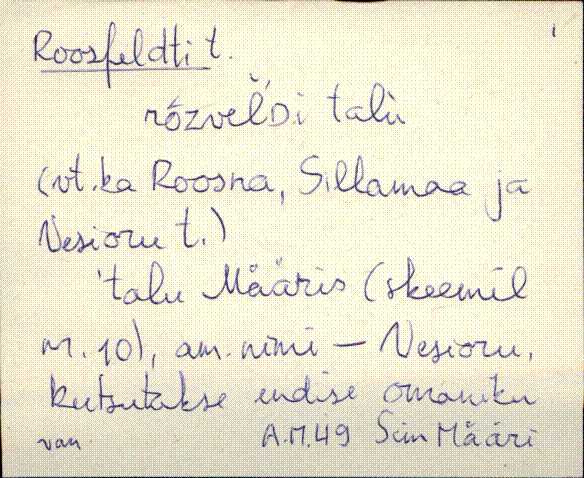 Roosfeldti t.
rózvel'Di talù
(vt. ka Roosna, Sillamaa ja
Vesioru t.)
'talu Mååris (skeemil
nr. 10), am. nimi — Vesioru,
kutsutakse endise omaniku
van A.M.49 Siin Mååri